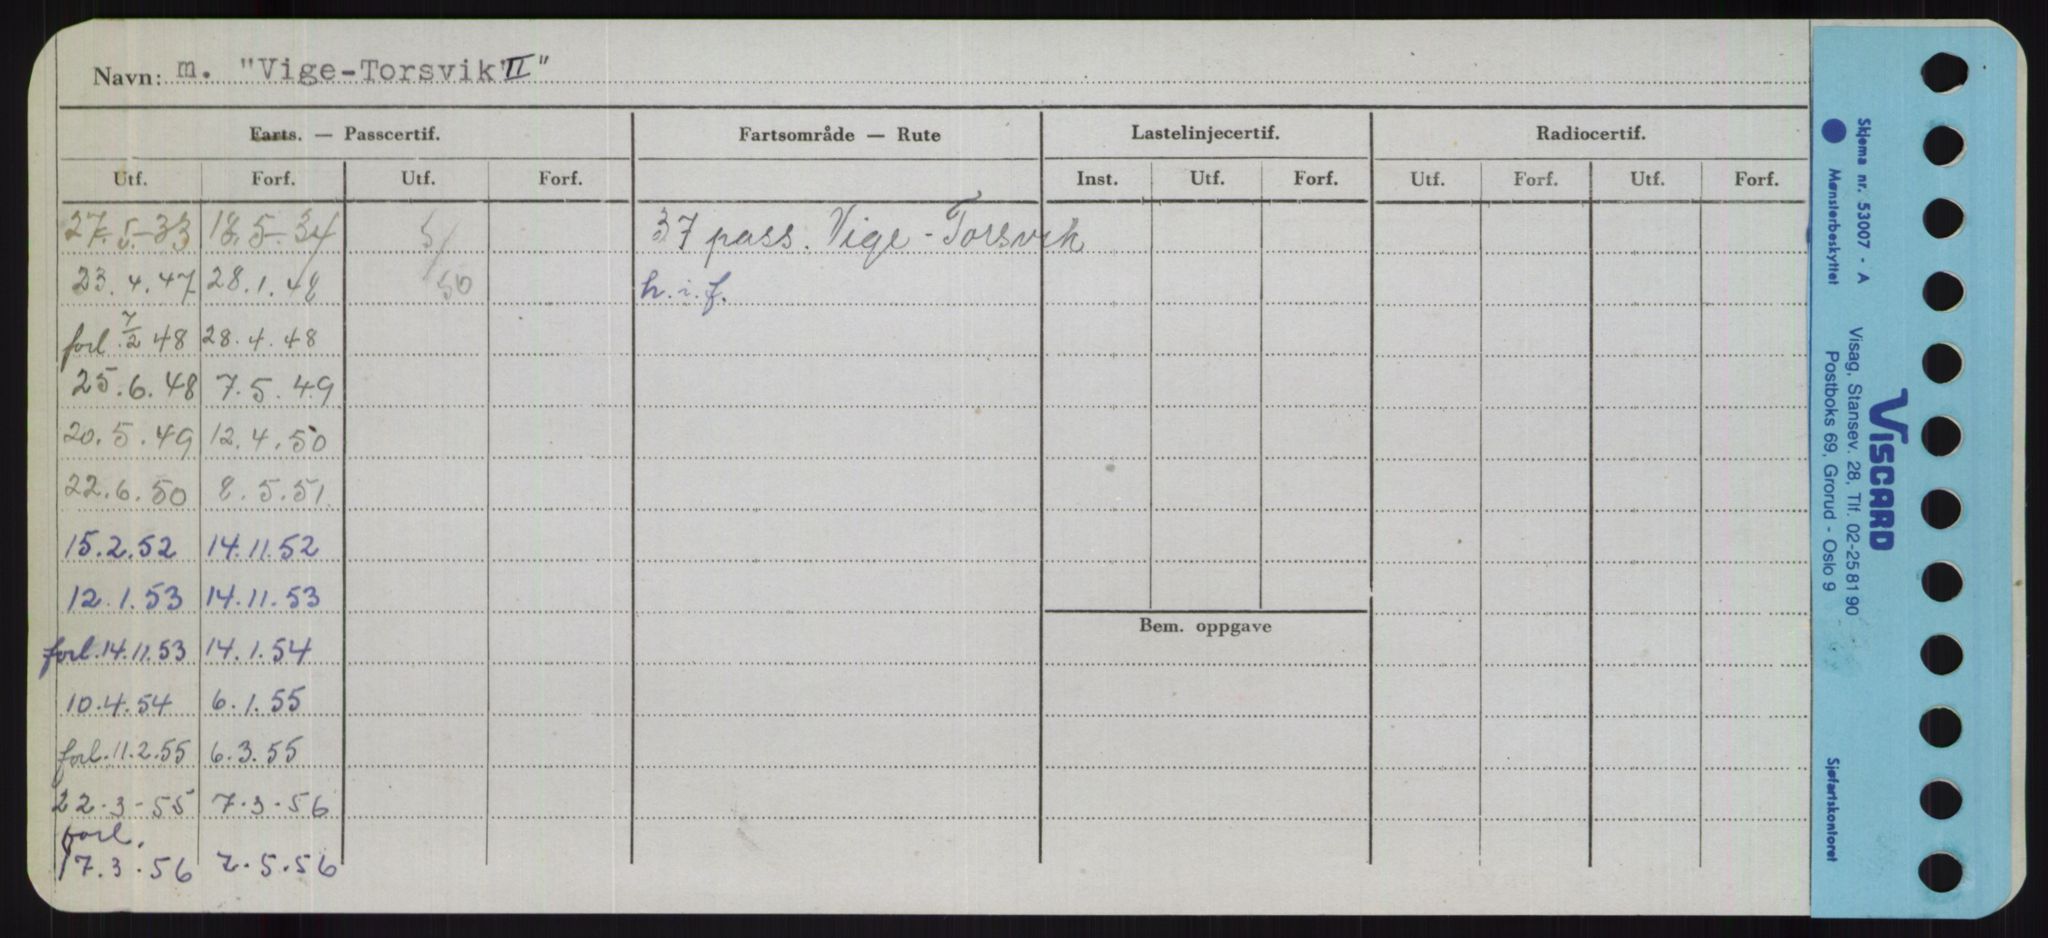 Navn: m. "Vige-Torsvik II"
Farts. — Passcertif. Fartsområde — Rute Lastelinjecertif. Radiocertif.
Utf. Forf. Utf. Forf. Inst. Utf. Forf. Utf. Forf. Utf. Forf.
27.5-33 18.5-34 5/ 37 pass. Vige - Torsvik
23.4.47 28.1.48 50 h.i.f.
forl 7/2 48 28.4.48
25.6.48 7.5.49
20.5.49 12.4.50
22.6.50 8.5.51
15.2.52 14.11.52
12.1.53 14.11.53
Bem. oppgave
forl.14.11.53 14.1.54
10.4.54 6.1.55
forl.11.2.55 6.3.55
22-3-55 7-3-56
forl.
17.3.56 7.5.56
Skjema nr. 53007 - A
Mønsterbeskyttet
VISCARD
Visag, Stansev. 28, Tlf. 02-25 81 90
Postboks 69, Grorud - Oslo 9
Sjøfartskontoret